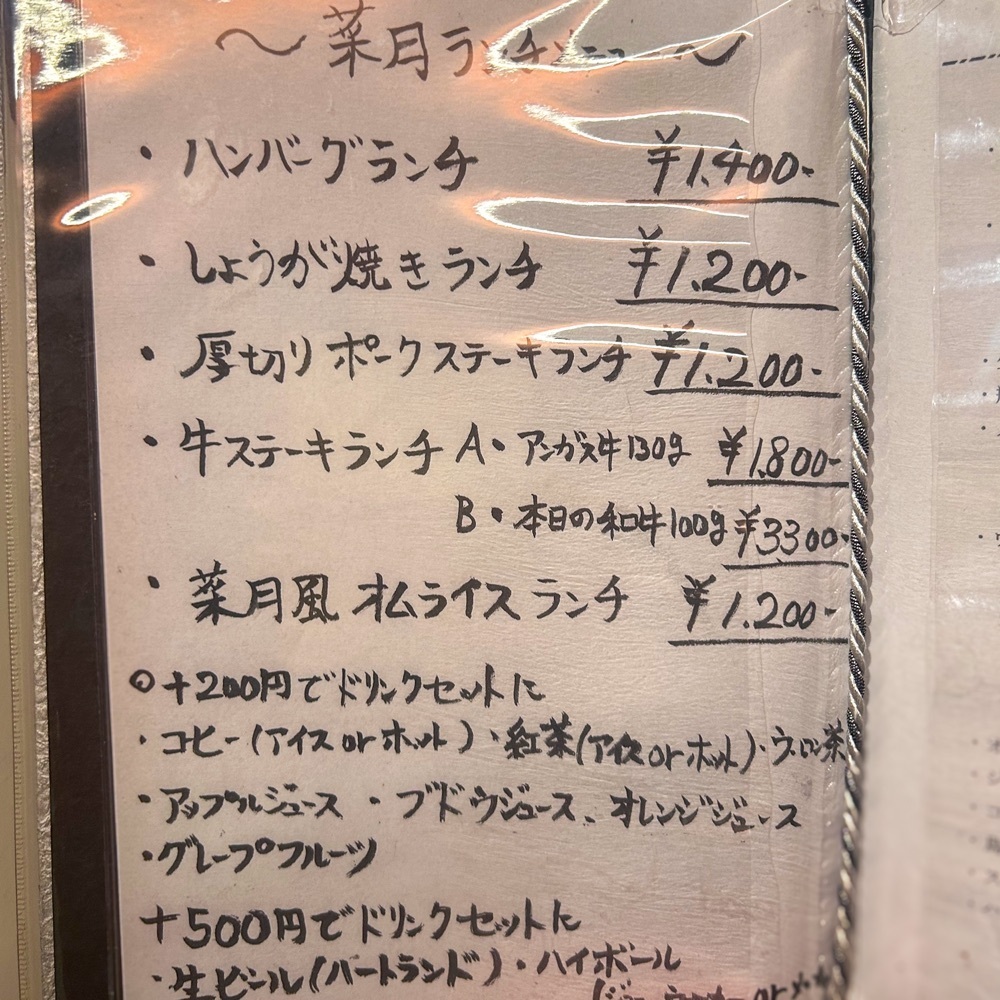 〜菜月ランチメニュー〜
・ハンバーグランチ ¥1.400-
・しょうが焼きランチ ¥1.200-
・厚切りポークステーキランチ ¥1.200-
・牛ステーキランチ A・アンガス牛130g ¥1.800-
B・本日の和牛100g ¥3300-
・菜月風オムライスランチ ¥1.200-
○+200円でドリンクセットに
・コーヒー(アイス or ホット)・紅茶(アイス or ホット)・ウーロン茶
・アップルジュース・ブドウジュース、オレンジジュース
・グレープフルーツ
+500円でドリンクセットに
・生ビール(ハートランド)・ハイボール